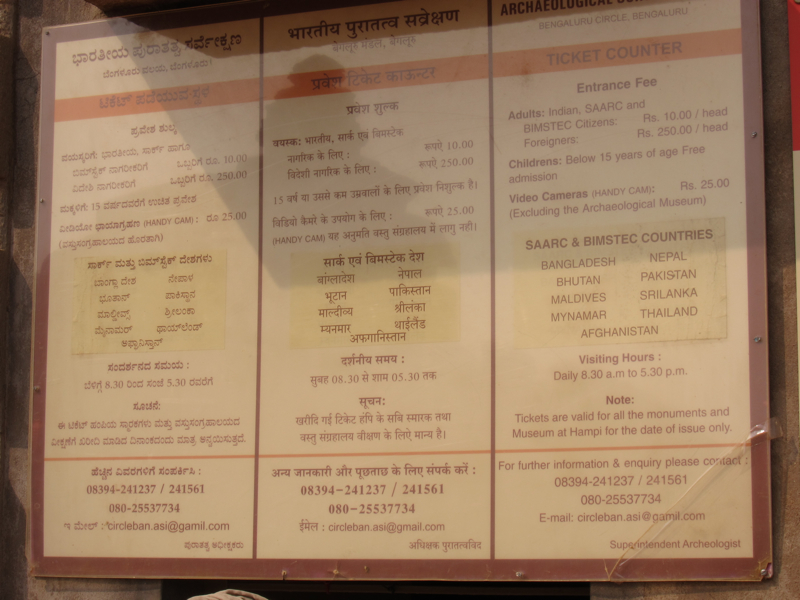 ಭಾರತೀಯ ಪುರಾತತ್ವ ಸರ್ವೇಕ್ಷಣ
ಬೆಂಗಳೂರು ವಲಯ, ಬೆಂಗಳೂರು
ಟಿಕೆಟ್ ಪಡೆಯುವ ಸ್ಥಳ
ಪ್ರವೇಶ ಶುಲ್ಕ
ವಯಸ್ಕರಿಗೆ: ಭಾರತೀಯ, ಸಾರ್ಕ್ ಹಾಗೂ
ಬಿಮ್‌ಸ್ಟೆಕ್ ನಾಗರೀಕರಿಗೆ ಒಬ್ಬರಿಗೆ ರೂ. 10.00
ವಿದೇಶಿ ನಾಗರೀಕರಿಗೆ ಒಬ್ಬರಿಗೆ ರೂ. 250.00
ಮಕ್ಕಳಿಗೆ: 15 ವರ್ಷದವರೆಗೆ ಉಚಿತ ಪ್ರವೇಶ
ವೀಡಿಯೋ ಛಾಯಾಗ್ರಹಣ (HANDY CAM) : ರೂ 25.00
(ವಸ್ತುಸಂಗ್ರಹಾಲಯದ ಹೊರತಾಗಿ)
ಸಾರ್ಕ್ ಮತ್ತು ಬಿಮ್‌ಸ್ಟೆಕ್ ದೇಶಗಳು
ಬಾಂಗ್ಲಾ ದೇಶ ನೇಪಾಳ
ಭೂತಾನ್ ಪಾಕಿಸ್ತಾನ
ಮಾಲ್ಡೀವ್ಸ್ ಶ್ರೀಲಂಕಾ
ಮೈನಾಮರ್ ಥಾಯ್‌ಲೆಂಡ್
ಅಫ್ಘಾನಿಸ್ತಾನ್
ಸಂದರ್ಶನದ ಸಮಯ :
ಬೆಳಿಗ್ಗೆ 8.30 ರಿಂದ ಸಂಜೆ 5.30 ರವರೆಗೆ
ಸೂಚನೆ:
ಈ ಟಿಕೆಟ್ ಹಂಪಿಯ ಸ್ಮಾರಕಗಳು ಮತ್ತು ವಸ್ತುಸಂಗ್ರಹಾಲಯದ
ವೀಕ್ಷಣೆಗೆ ಖರೀದಿ ಮಾಡಿದ ದಿನಾಂಕದಂದು ಮಾತ್ರ ಅನ್ವಯಿಸುತ್ತದೆ.
ಹೆಚ್ಚಿನ ವಿವರಗಳಿಗೆ ಸಂಪರ್ಕಿಸಿ :
08394-241237 / 241561
080-25537734
ಇ ಮೇಲ್ : circleban.asi@gamil.com
ಪುರಾತತ್ವ ಅಧೀಕ್ಷಕರು
भारतीय पुरातत्व सर्वेक्षण
बेंगलूरु मंडल, बेंगलूरु
प्रवेश टिकेट काऊन्टर
प्रवेश शुल्क
वयस्क: भारतीय, सार्क एवं बिमस्टेक
नागरिक के लिए : रूपऐ 10.00
विदेशी नागरिक के लिए : रूपऐ 250.00
15 वर्ष या उससे कम उम्रवालों के लिए प्रवेश निशुल्क है।
विडियो कैमरे के उपयोग के लिए : रूपऐ 25.00
(HANDY CAM) यह अनुमति वस्तु संग्रहालय में लागु नही।
सार्क एवं बिमस्टेक देश
बांग्लादेश नेपाल
भूटान पाकिस्तान
माल्दीव्य श्रीलंका
म्यनमार थाईलैंड
अफगानिस्तान
दर्शनीय समय :
सुबह 08.30 से शाम 05.30 तक
सूचन:
खरीदि गई टिकेट हंपि के सबि स्मारक तथा
वस्तु संग्रहालय वीक्षण के लिऐ मान्य है।
अन्य जानकारी और पूछताछ के लिए संपर्क करें :
08394-241237 / 241561
080-25537734
ईमेल : circleban.asi@gmail.com
अधिक्षक पुरातत्वविद
ARCHAEOLOGICAL
BENGALURU CIRCLE, BENGALURU
TICKET COUNTER
Entrance Fee
Adults: Indian, SAARC and
BIMSTEC Citizens: Rs. 10.00 / head
Foreigners: Rs. 250.00 / head
Childrens: Below 15 years of age Free
admission
Video Cameras (HANDY CAM): Rs. 25.00
(Excluding the Archaeological Museum)
SAARC & BIMSTEC COUNTRIES
BANGLADESH NEPAL
BHUTAN PAKISTAN
MALDIVES SRILANKA
MYNAMAR THAILAND
AFGHANISTAN
Visiting Hours :
Daily 8.30 a.m to 5.30 p.m.
Note:
Tickets are valid for all the monuments and
Museum at Hampi for the date of issue only.
For further information & enquiry please contact :
08394-241237 / 241561
080-25537734
E-mail: circleban.asi@gamil.com
Superintendent Archeologist